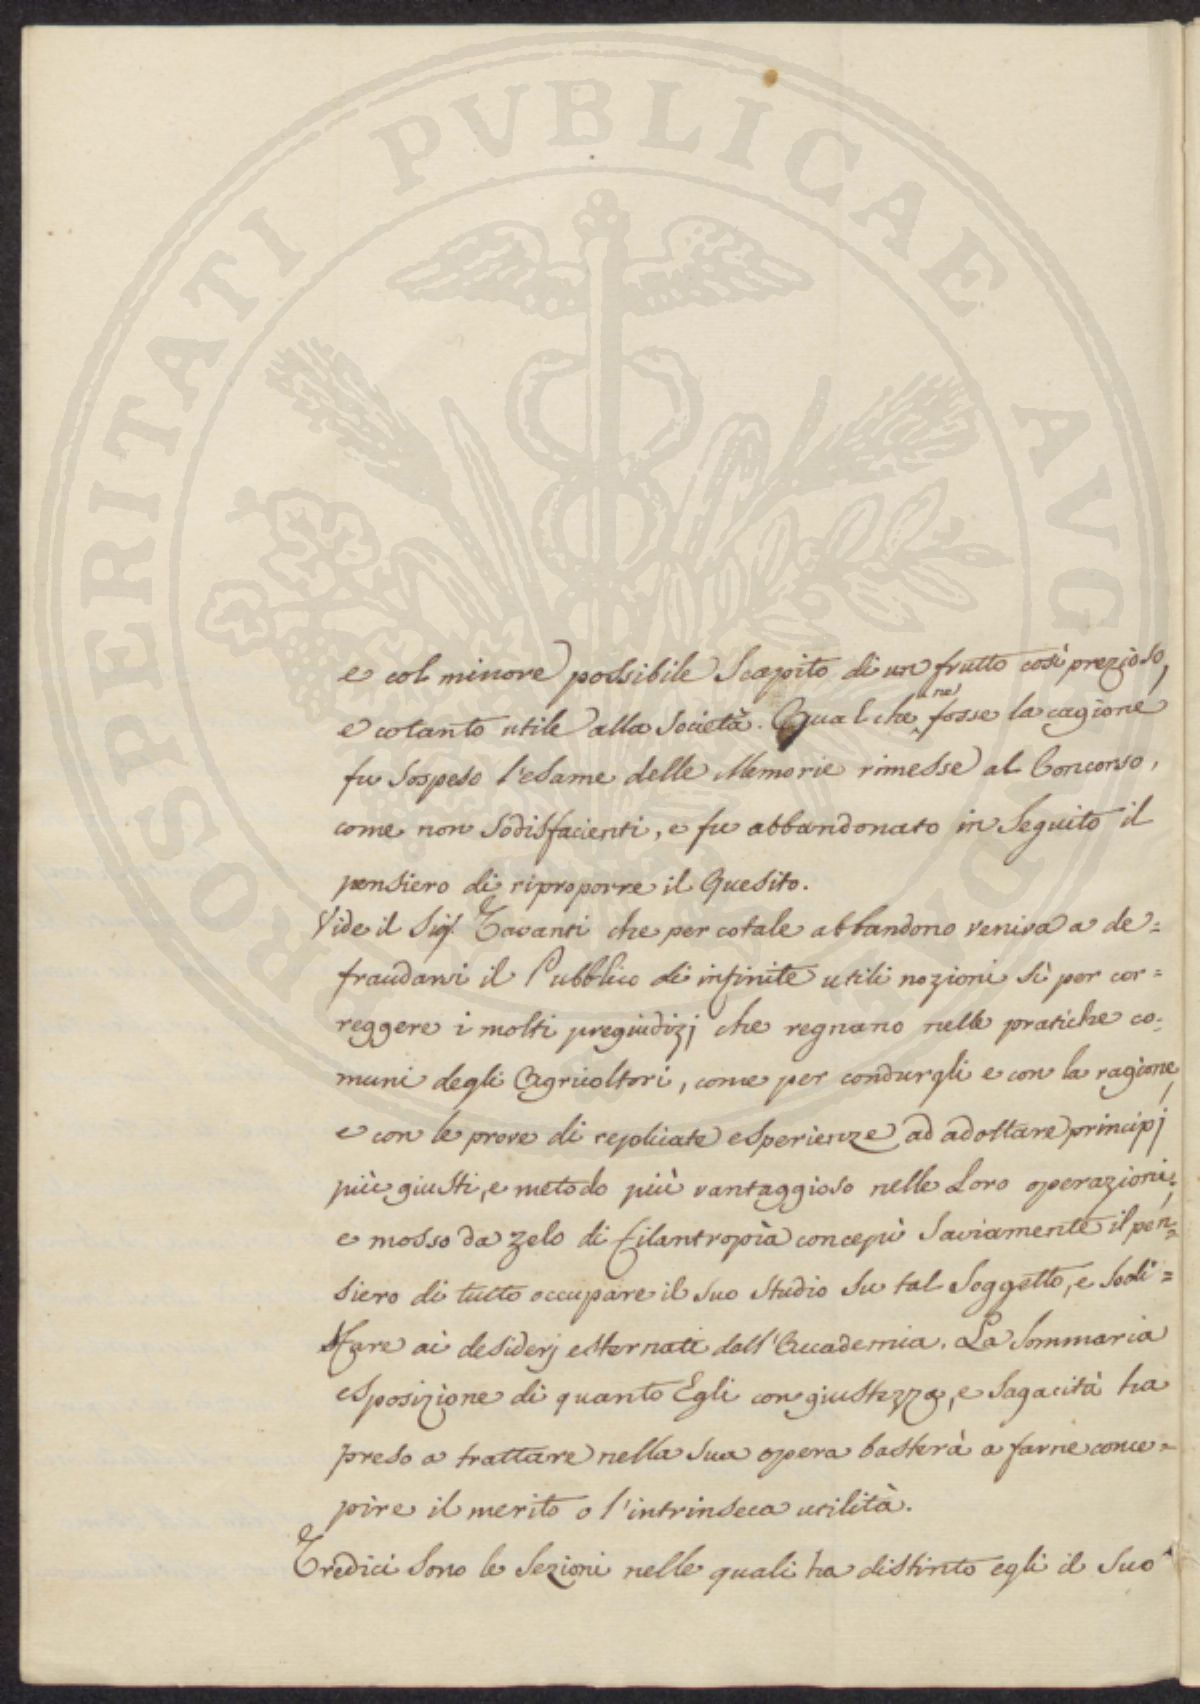 PROSPERITATI PVBLICAE AVGENDAE
e col minore possibile scapito di un frutto così prezioso,
e cotanto utile alla società. Qual che ne fosse la cagione
fu sospeso l'esame delle Memorie rimesse al Concorso,
come non sodisfacienti, e fu abbandonato in seguito il
pensiero di riproporre il Quesito.
Vide il Sig. Tavanti che per cotale abbandono veniva a de=
fraudarsi il Pubblico di infinite utili nozioni sì per cor=
reggere i molti pregiudizj che regnano nelle pratiche co=
muni degli Agricoltori, come per condurgli e con la ragione,
e con le prove di replicate esperienze ad adottare principj
più giusti, e metodo più vantaggioso nelle Loro operazioni;
e mosso da zelo di filantropìa concepì saviamente il pen=
siero di tutto occupare il suo studio su tal soggetto, e sodi=
sfare ai desiderj esternati dall'Accademia. La sommaria
esposizione di quanto Egli con giustezza, e sagacità ha
preso a trattare nella sua opera basterà a farne conce=
pire il merito e l'intrinseca utilità.
Tredici sono le sezioni nelle quali ha distinto egli il suo